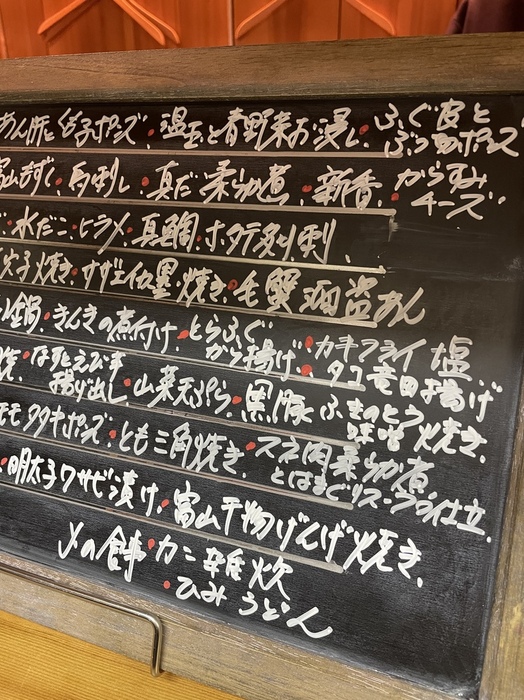 あん肝と白子ポンズ・温玉と春野菜お浸し・ふぐ皮と
ぶつ切ポンズ
富山もずく・馬刺し・真だこ柔らか煮・新香・からすみ
チーズ
水だこ・ヒラメ・真鯛・ホタテ刺
穴子焼き・サザエイカ墨焼き・毛蟹 あん
鍋・きんきの煮付け・とらふぐ
から揚げ・カキフライ 塩
・タコ竜田揚げ
なすとえび
揚げ出し・山菜天ぷら・黒豚ふきのとう
味噌焼き
モモタタキポンズ・とも三角焼き・スネ肉柔らか煮
とはまぐりスープ仕立
・明太子ワサビ漬け・富山干物げんげ焼き
〆の食事・カニ雑炊
・ひみうどん